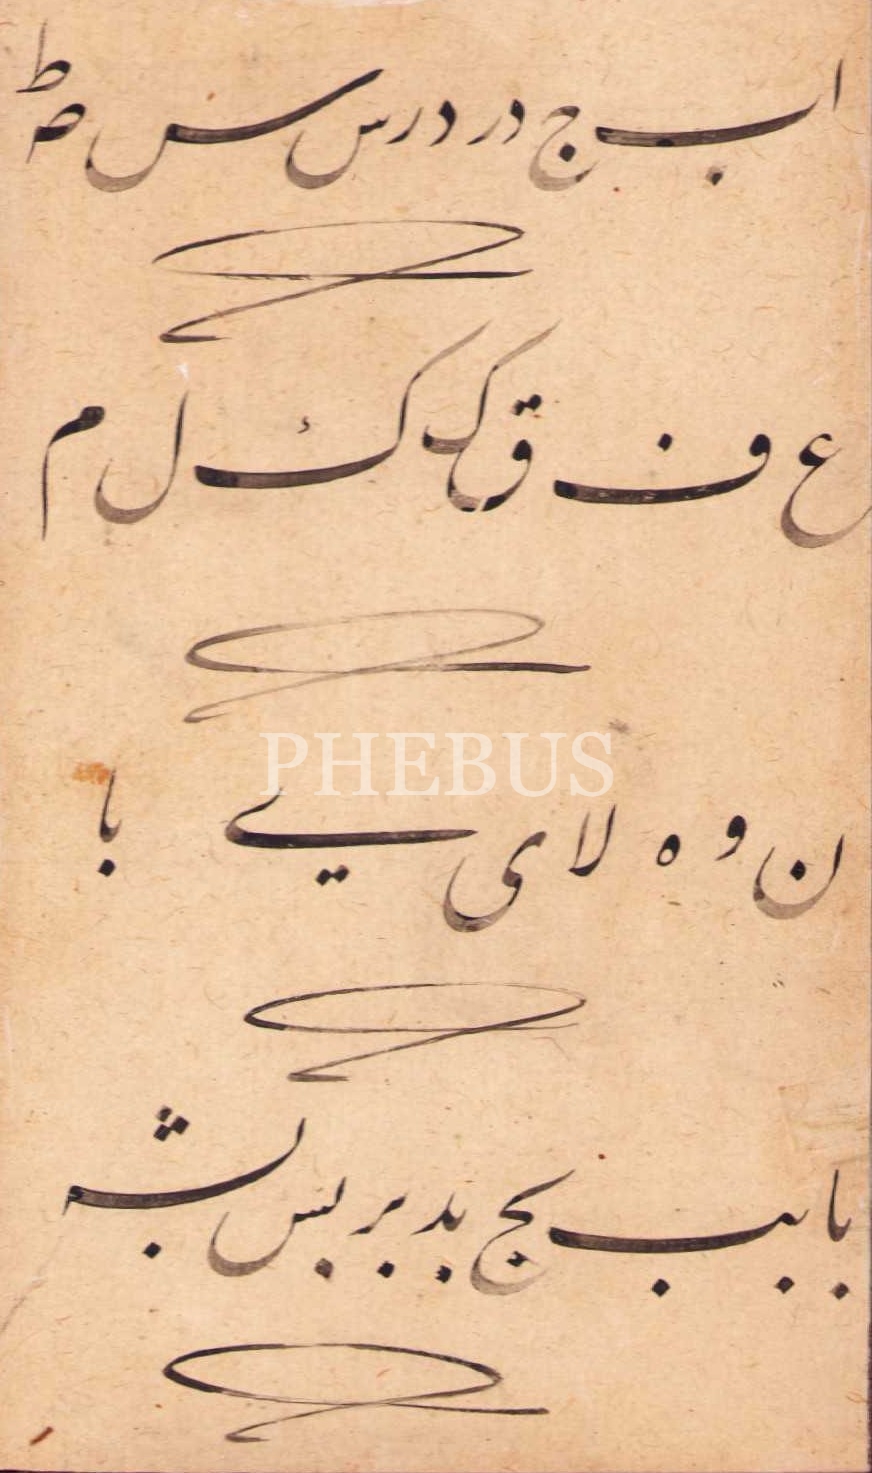 ا ب ج د ر د ر س س ص ط
ع ف ق ک ك ل م
PHEBUS
ن و ه لا ی ے با
با ببب بج بد بر بس